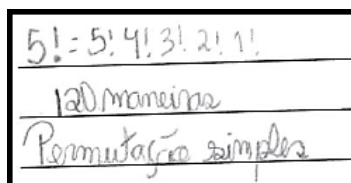 5! = 5! 4! 3! 2! 1!
120 maneiras
Permutação simples